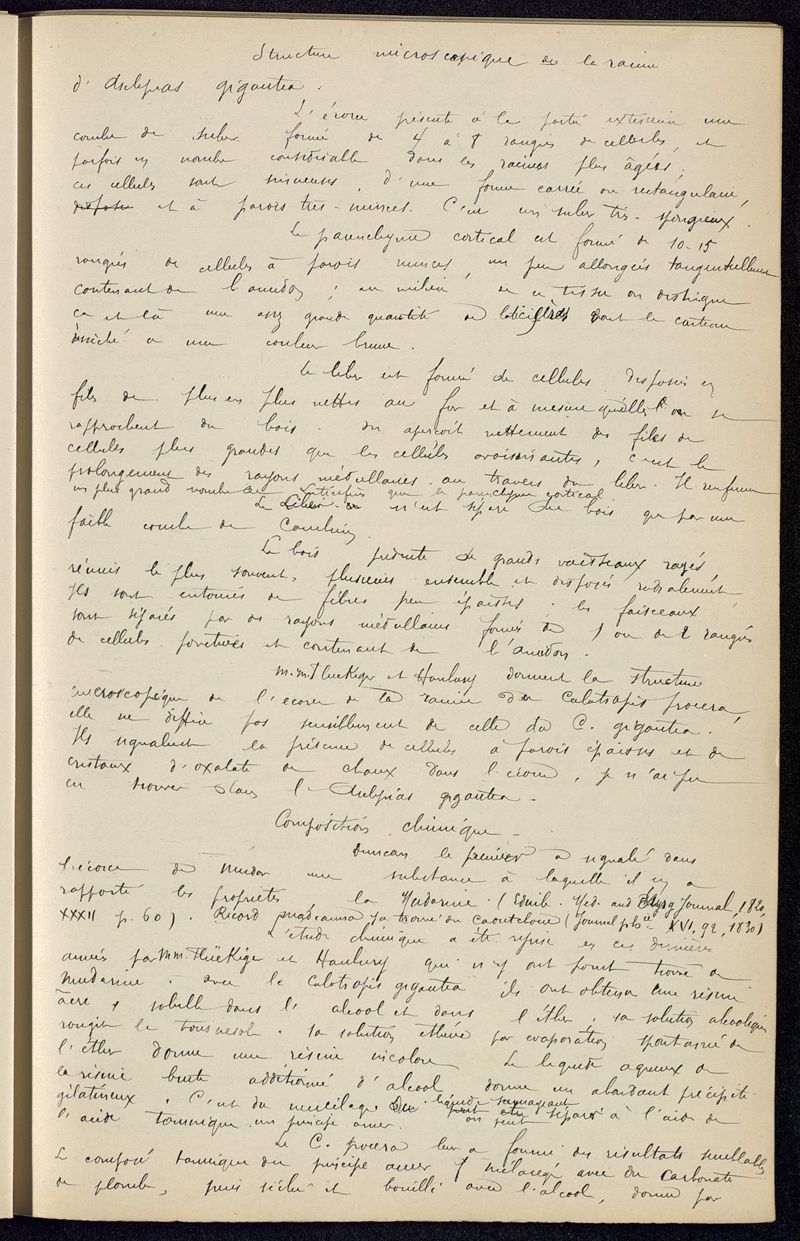 Structure microscopique de la racine
d'Asclepias gigantea.
L'écorce présente à la partie extérieure une
couche de suber formé de 4 à 8 rangés de cellules, et
parfois en nombre considérable dans les racines plus âgées,
ces cellules sont sinueuses, d'une forme carrée ou rectangulaire,
et à parois très-minces. C'est un suber très-spongieux.
Le parenchyme cortical est formé de 10-15
rangées de cellules à parois minces, un peu allongées tangentiellement
contenant de l'amidon; au milieu de ce tissu on distingue
ça et là une assez grande quantité de laticifères dont le contenu
a une couleur brune.
Le liber est formé de cellules disposées en
files de plus en plus nettes au fur et à mesure qu'elles se
rapprochent du bois. On aperçoit nettement des files de
cellules plus grandes que les cellules avoisinantes, c'est le
prolongement des rayons médullaires au travers du liber. Il renferme
un plus grand nombre de laticifères que le parenchyme cortical
Le Liber n'est séparé du bois que par une
faible couche de Cambium.
Le bois présente de grands vaisseaux rayés,
réunis le plus souvent, plusieurs ensemble et disposés radialement
Ils sont entourés de fibres peu épaisses. Les faisceaux
sont séparés par des rayons médullaires formés de 1 ou de 2 rangées
de cellules ponctuées et contenant de l'amidon.
M.M. Fluckiger et Hanbury donnent la structure
microscopique de l'écorce de la racine du Calotropis procera,
elle ne diffère pas sensiblement de celle du C. gigantea.
Ils signalent la présence de cellules à parois épaisses et de
cristaux d'oxalate de chaux dans l'écorce, je n'ai pu
en trouver dans l'Asclepias gigantea.
Composition chimique -
Duncan le premier a signalé dans
l'écorce de Mudar une substance à laquelle il en a
rapporté les propriétés la Mudarine. (Edinb. Med. and Surg Journal, 1820,
XXXII p. 60). Ricord y a trouvé du caoutchouc (Journal XVI, 92, 1830)
L'étude chimique a été reprise en ces dernières
années par MM Flückiger et Hanbury qui n'y ont point trouvé de
mudarine. avec le Calotropis gigantea ils ont obtenu une résine
âcre, soluble dans l'alcool et dans l'éther, sa solution alcoolique
rougit le tournesol. sa solution éthérée par évaporation spontanée de
l'éther donne une résine incolore. Le liquide aqueux de
la résine brute additionné d'alcool donne un abondant précipité
gélatineux. C'est du mucilage. Du liquide surnageant
on peut séparer à l'aide de
l'acide tannique un principe amer.
Le C. procera leur a fourni des résultats semblables
Le composé tannique du principe amer mélangé avec du carbonate
de plomb, puis séché et bouilli avec l'alcool, donne par